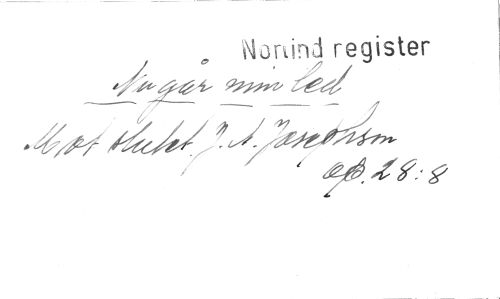 Norlind register
Nu går min led
Mot slutet. J. A. Josephson
op. 28:8